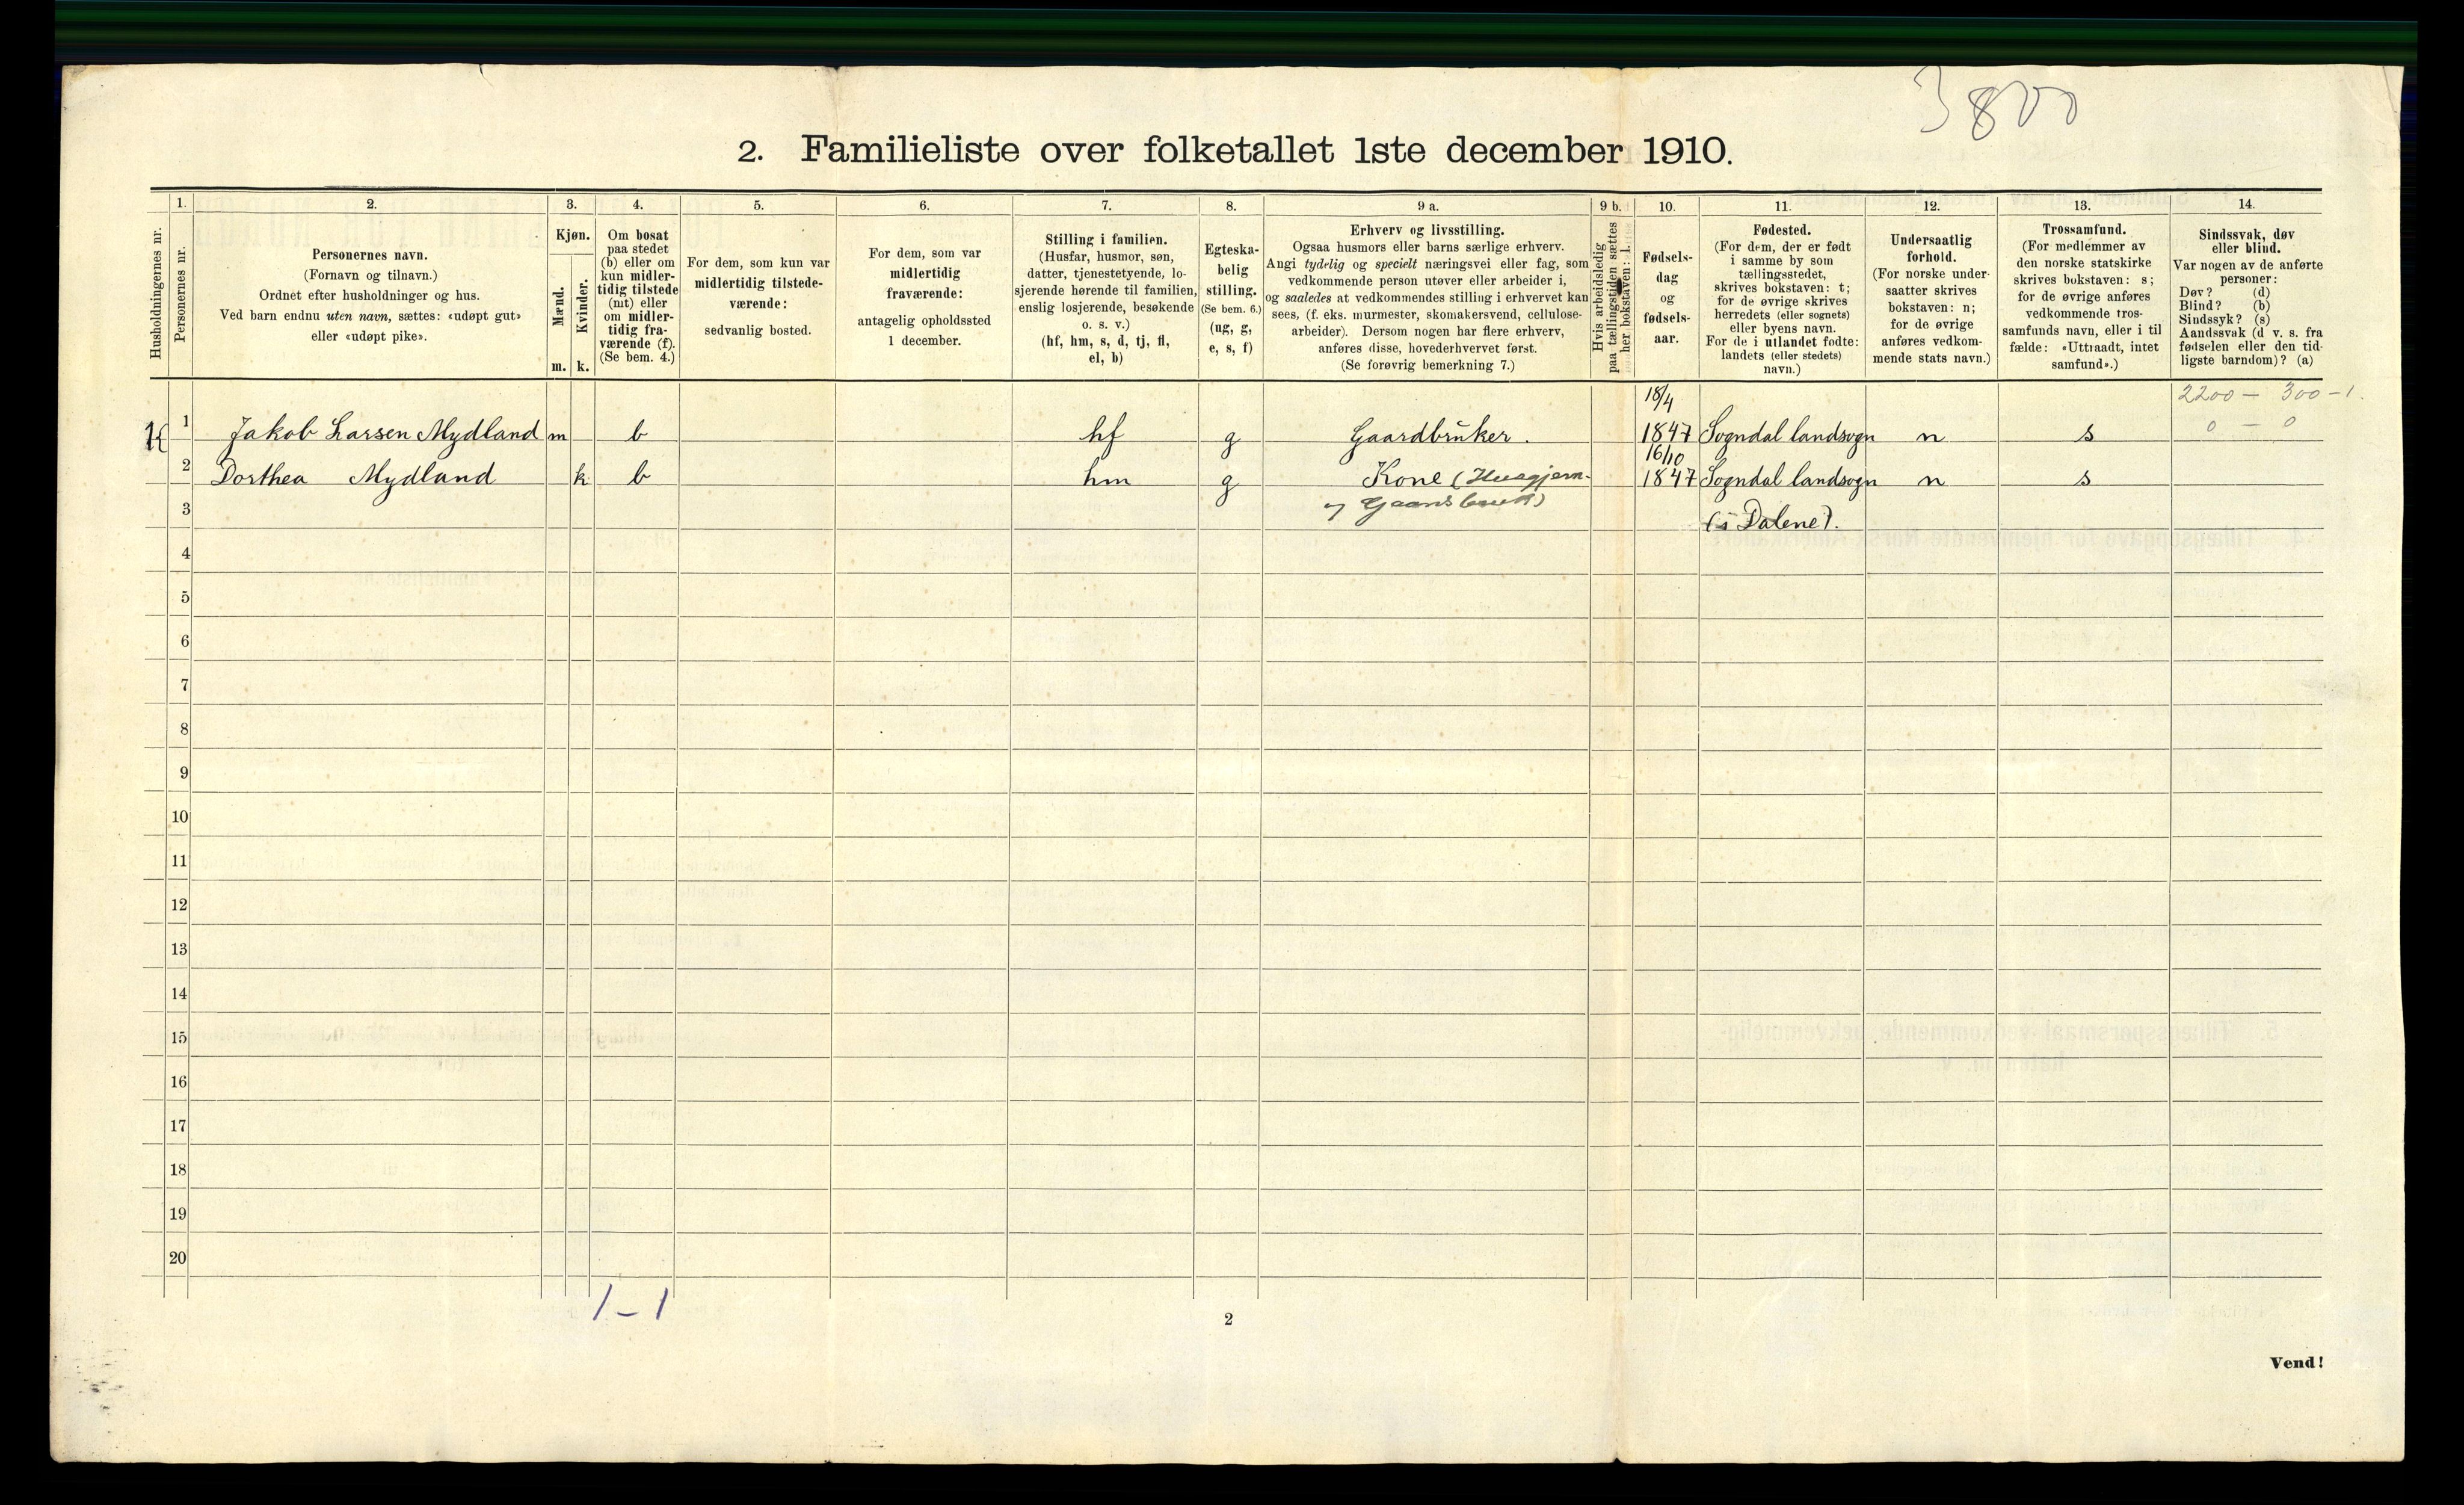 3800
2. Familieliste over folketallet 1ste december 1910.
Husholdningernes nr.
1.
Personernes nr.
2.
Personernes navn.
(Fornavn og tilnavn.)
Ordnet efter husholdninger og hus.
Ved barn endnu uten navn, sættes: «udøpt gut»
eller «udøpt pike».
3.
Kjøn.
Mænd.
Kvinder.
m. k.
4.
Om bosat
paa stedet
(b) eller om
kun midler-
tidig tilstede
(mt) eller
om midler-
tidig fra-
værende (f).
(Se bem. 4.)
5.
For dem, som kun var
midlertidig tilstede-
værende:
sedvanlig bosted.
6.
For dem, som var
midlertidig
fraværende:
antagelig opholdssted
1 december.
7.
Stilling i familien.
(Husfar, husmor, søn,
datter, tjenestetyende, lo-
sjerende hørende til familien,
enslig losjerende, besøkende
o. s. v.)
(hf, hm, s, d, tj, fl,
el, b)
8.
Egteska-
belig
stilling.
(Se bem. 6.)
(ug, g,
e, s, f)
9 a.
Erhverv og livsstilling.
Ogsaa husmors eller barns særlige erhverv.
Angi tydelig og specielt næringsvei eller fag, som
vedkommende person utøver eller arbeider i,
og saaledes at vedkommendes stilling i erhvervet kan
sees, (f. eks. murmester, skomakersvend, cellulose-
arbeider). Dersom nogen har flere erhverv,
anføres disse, hovederhvervet først.
(Se forøvrig bemerkning 7.)
9 b.
Hvis arbeidsledig
paa tællingstiden sættes
her bokstaven: l.
10.
Fødsels-
dag
og
fødsels-
aar.
11.
Fødested.
(For dem, der er født
i samme by som
tællingsstedet,
skrives bokstaven: t;
for de øvrige skrives
herredets (eller sognets)
eller byens navn.
For de i utlandet fødte:
landets (eller stedets)
navn.)
12.
Undersaatlig
forhold.
(For norske under-
saatter skrives
bokstaven: n;
for de øvrige
anføres vedkom-
mende stats navn.)
13.
Trossamfund.
(For medlemmer av
den norske statskirke
skrives bokstaven: s;
for de øvrige anføres
vedkommende tros-
samfunds navn, eller i til
fælde: «Uttraadt, intet
samfund».)
14.
Sindssvak, døv
eller blind.
Var nogen av de anførte
personer:
Døv? (d)
Blind? (b)
Sindssyk? (s)
Aandssvak (d v. s. fra
fødselen eller den tid-
ligste barndom)? (a)
18/4 2200 – 300 – 1.
1 Jakob Larsen Mydland m b hf g Gaardbruker. 1847 Sogndal landsogn n s 0 – 0
16/10
2 Dorthea Mydland k b hm g Kone (Husgjern- 1847 Sogndal landsogn n s
3 og Gaardsbruk) (i Dalene).
4
5
6
7
8
9
10
11
12
13
14
15
16
17
18
19
20
1 – 1
2
Vend!